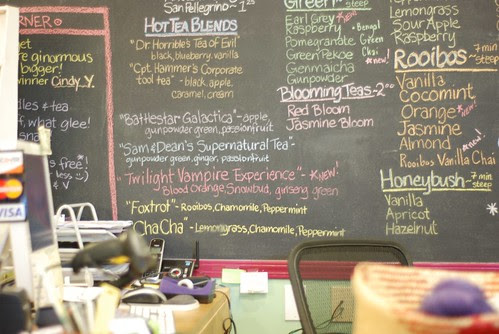 RNER
get
re ginormous
bigger!
winner Cindy Y.
dles & tea
ff, what glee!
s free!
& V
VISA
San Pellegrino ~ 1.25
HOT TEA BLENDS
"Dr Horrible's Tea of Evil
black, blueberry, vanilla
"Cpt. Hammer's Corporate
tool tea" - black, apple,
caramel, cream
"Battlestar Galactica" - apple,
gunpowder green, passionfruit
"Sam & Dean's Supernatural Tea" -
gunpowder green, ginger, passionfruit
"Twilight Vampire Experience" - *NEW!
Blood Orange, Snowbud, ginseng green
"Foxtrot" - Rooibos, Chamomile, Peppermint
"Cha Cha" - Lemongrass, Chamomile, Peppermint
Green steep
Earl Grey *New!
Raspberry • Bengal
Pomegranate Green
Green Pekoe Chai
Genmaicha *new!
Gunpowder
Blooming Teas - 2.00
Red Bloom
Jasmine Bloom
Lemongrass
Sour Apple
Raspberry
Rooibos 7 min steep
Vanilla
Cocomint
Orange *new!
Jasmine
Almond *new!
Rooibos Vanilla Chai
Honeybush - 7 min steep
Vanilla
Apricot
Hazelnut